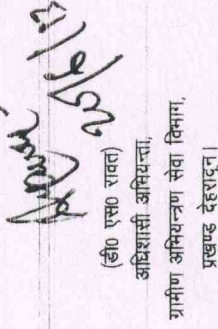 25/6/13
(डी० एस० रावत)
अधिशासी अभियन्ता,
ग्रामीण अभियन्त्रण सेवा विभाग,
प्रखण्ड देहरादून।